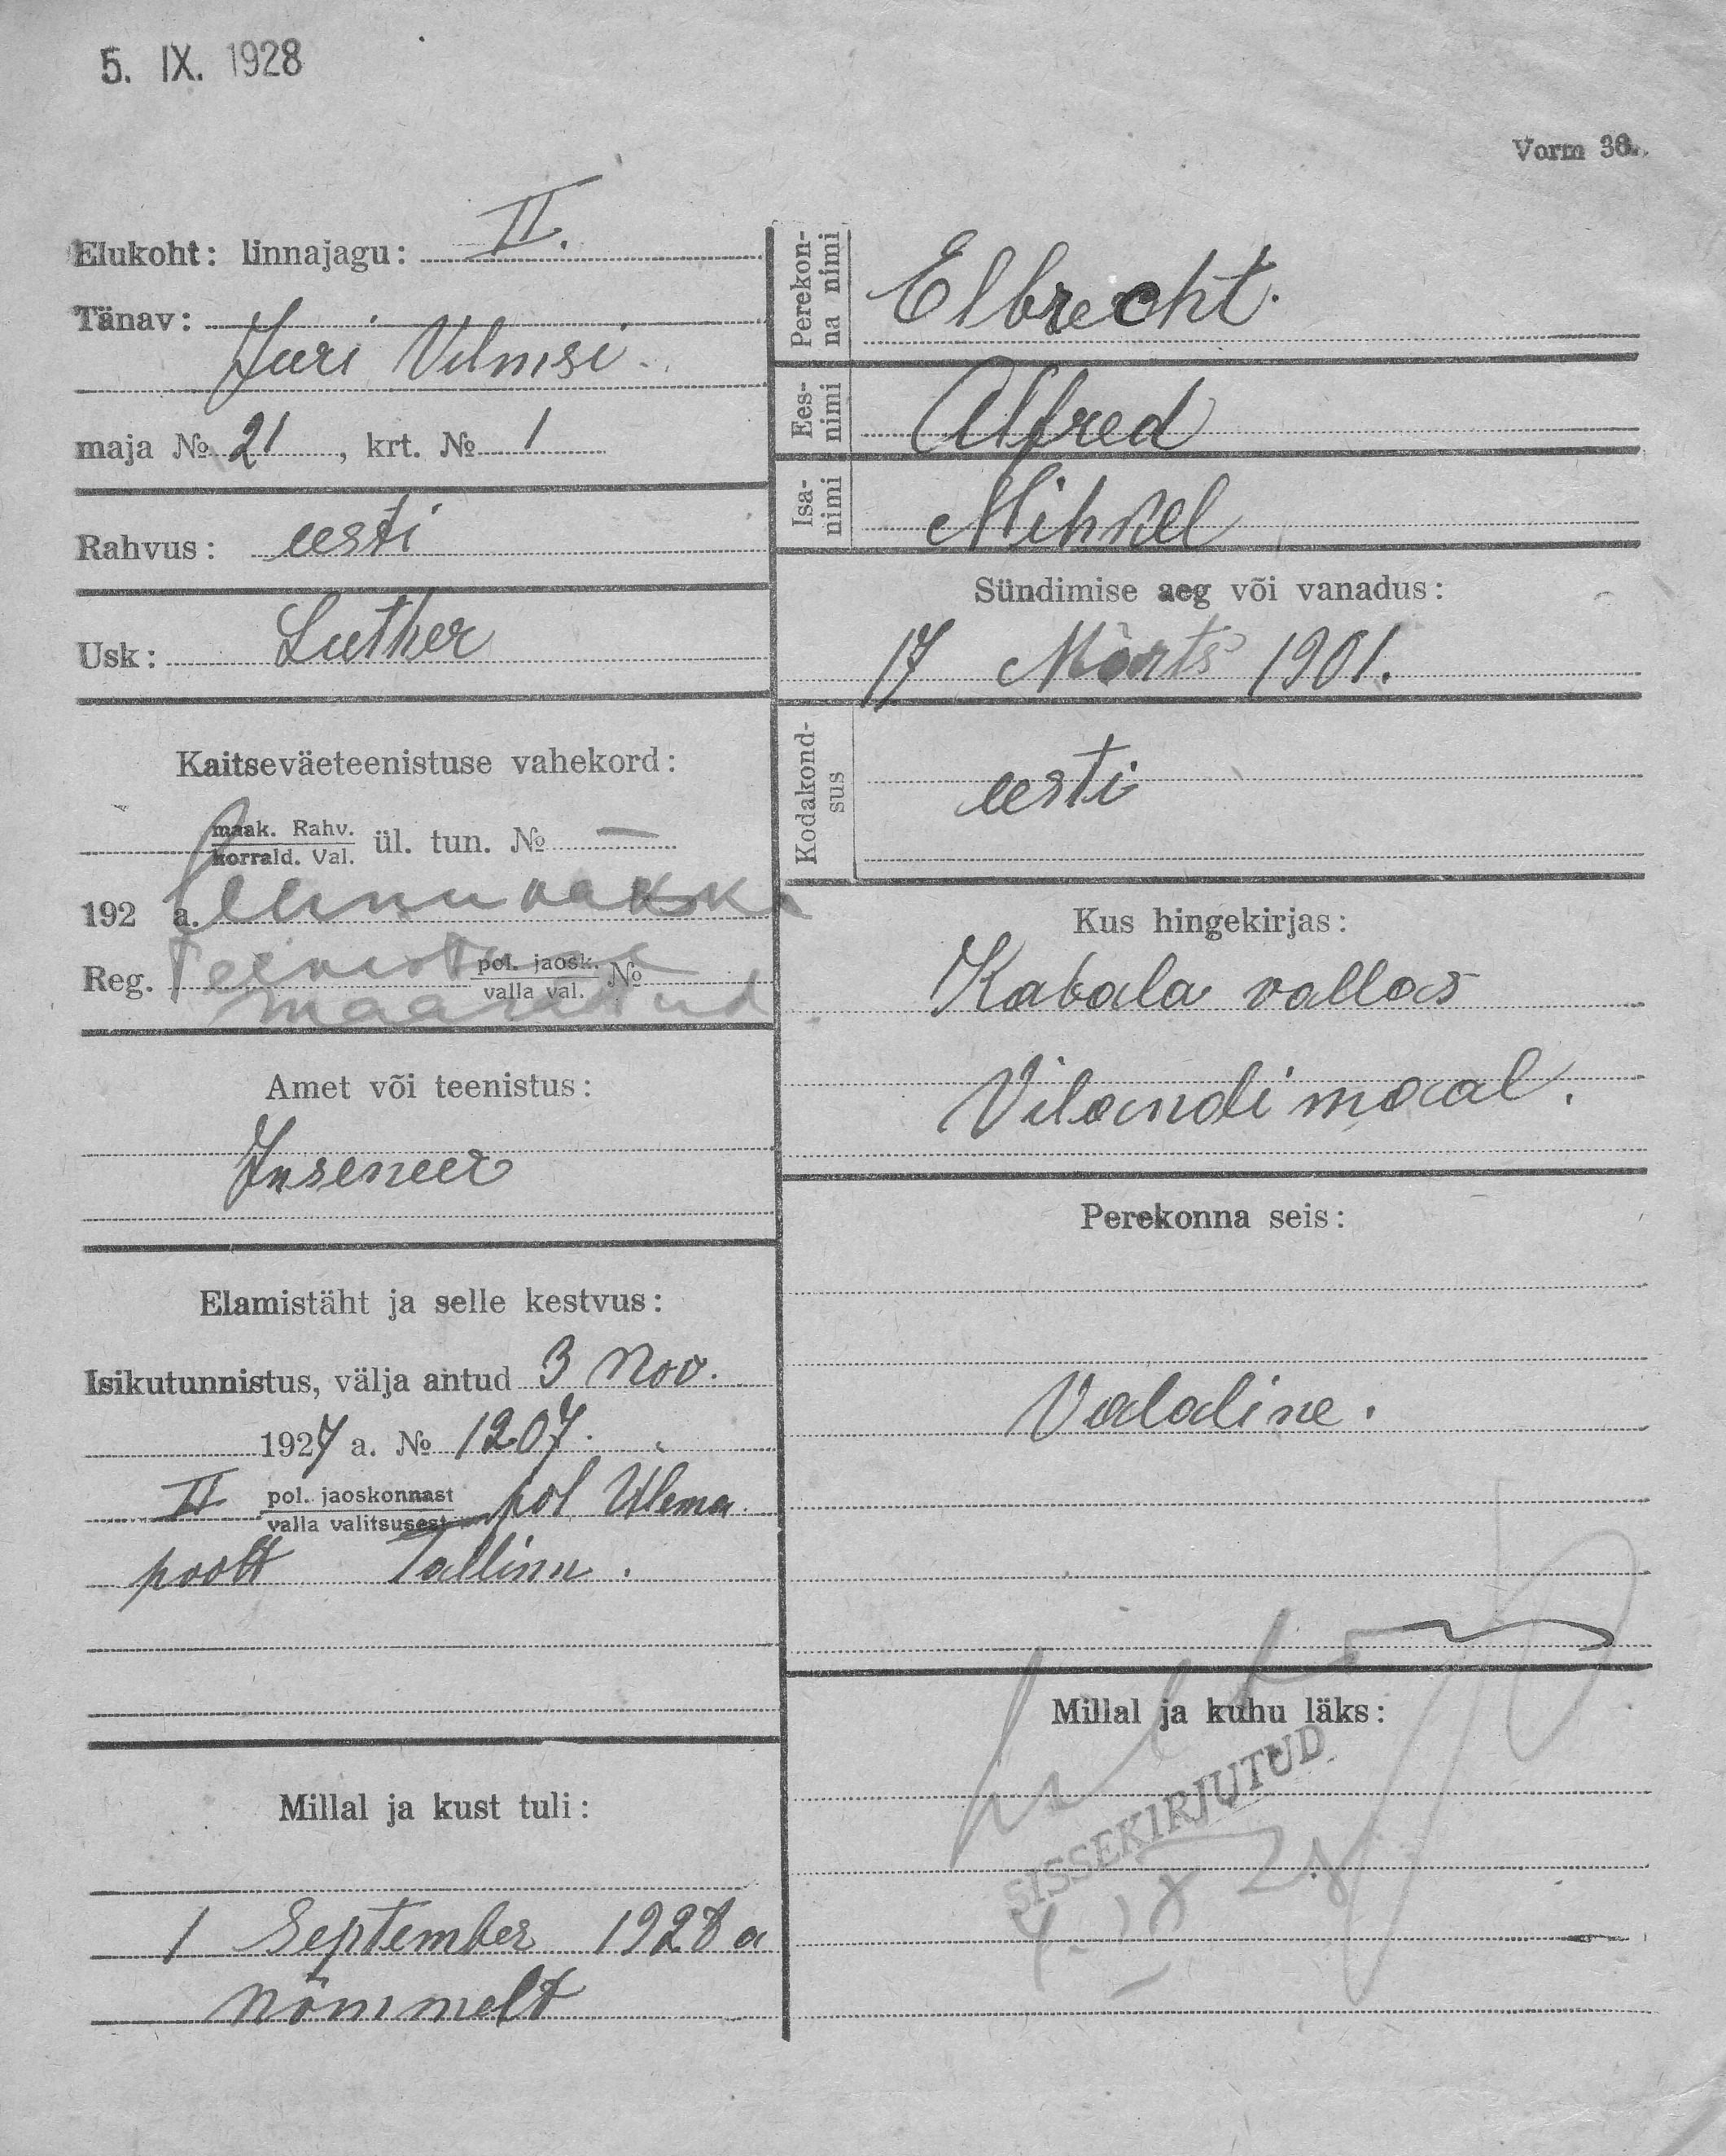 5. IX. 1928
Vorm 36.
Elukoht: linnajagu: II.
Tänav:
Jüri Vilmsi
maja № 21, krt. № 1
Rahvus: eesti
Usk: Luther
Kaitseväeteenistuse vahekord:
maak. Rahv.
korrald. Val. ül. tun. № —
192 a.
Reg. Teenistusse pol. jaosk.
valla val. №
määratud.
Amet või teenistus:
Inseneer
Elamistäht ja selle kestvus:
Isikutunnistus, välja antud 3 Nov.
1927 a. № 1207.
II pol. jaoskonnast pol Ülema
valla valitsusest
poolt Tallinn.
Millal ja kust tuli:
1 September 1928 a
Nõmmelt
Perekonna nimi
Elbrecht.
Eesnimi
Alfred
Isanimi
Mihkel
Sündimise aeg või vanadus:
17 Märts 1901.
Kodakondsus
eesti
Kus hingekirjas:
Kabala vallas
Vilandi maal.
Perekonna seis:
Vabaline.
Millal ja kuhu läks:
SISSEKIRJUTUD